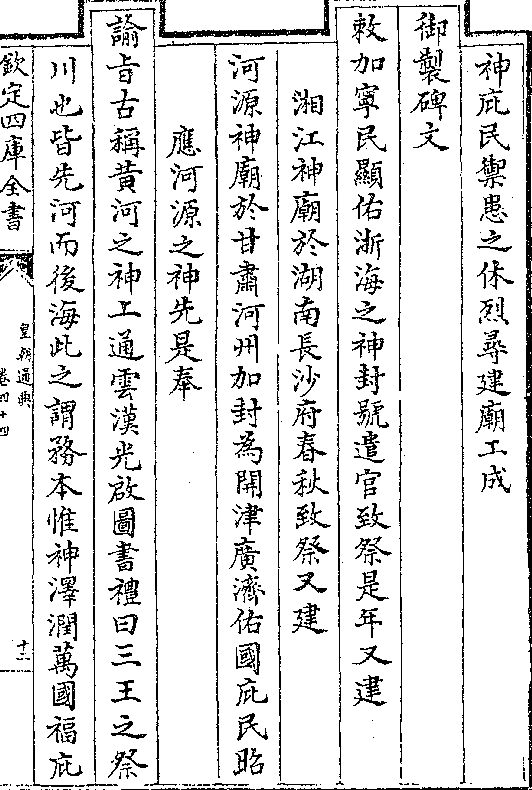 神庇民禦患之休烈尋建廟工成
御製碑文
敕加寧民顯佑浙海之神封號遣官致祭是年又建
湘江神廟於湖南長沙府春秋致祭又建
河源神廟於甘肅河州加封為開津廣濟佑國庇民昭
應河源之神先是奉
諭旨古稱黃河之神上通雲漢光啟圖書禮曰三王之祭
川也皆先河而後海此之謂務本惟神澤潤萬國福庇
欽定四庫全書
皇朝通典
卷四十四
十二